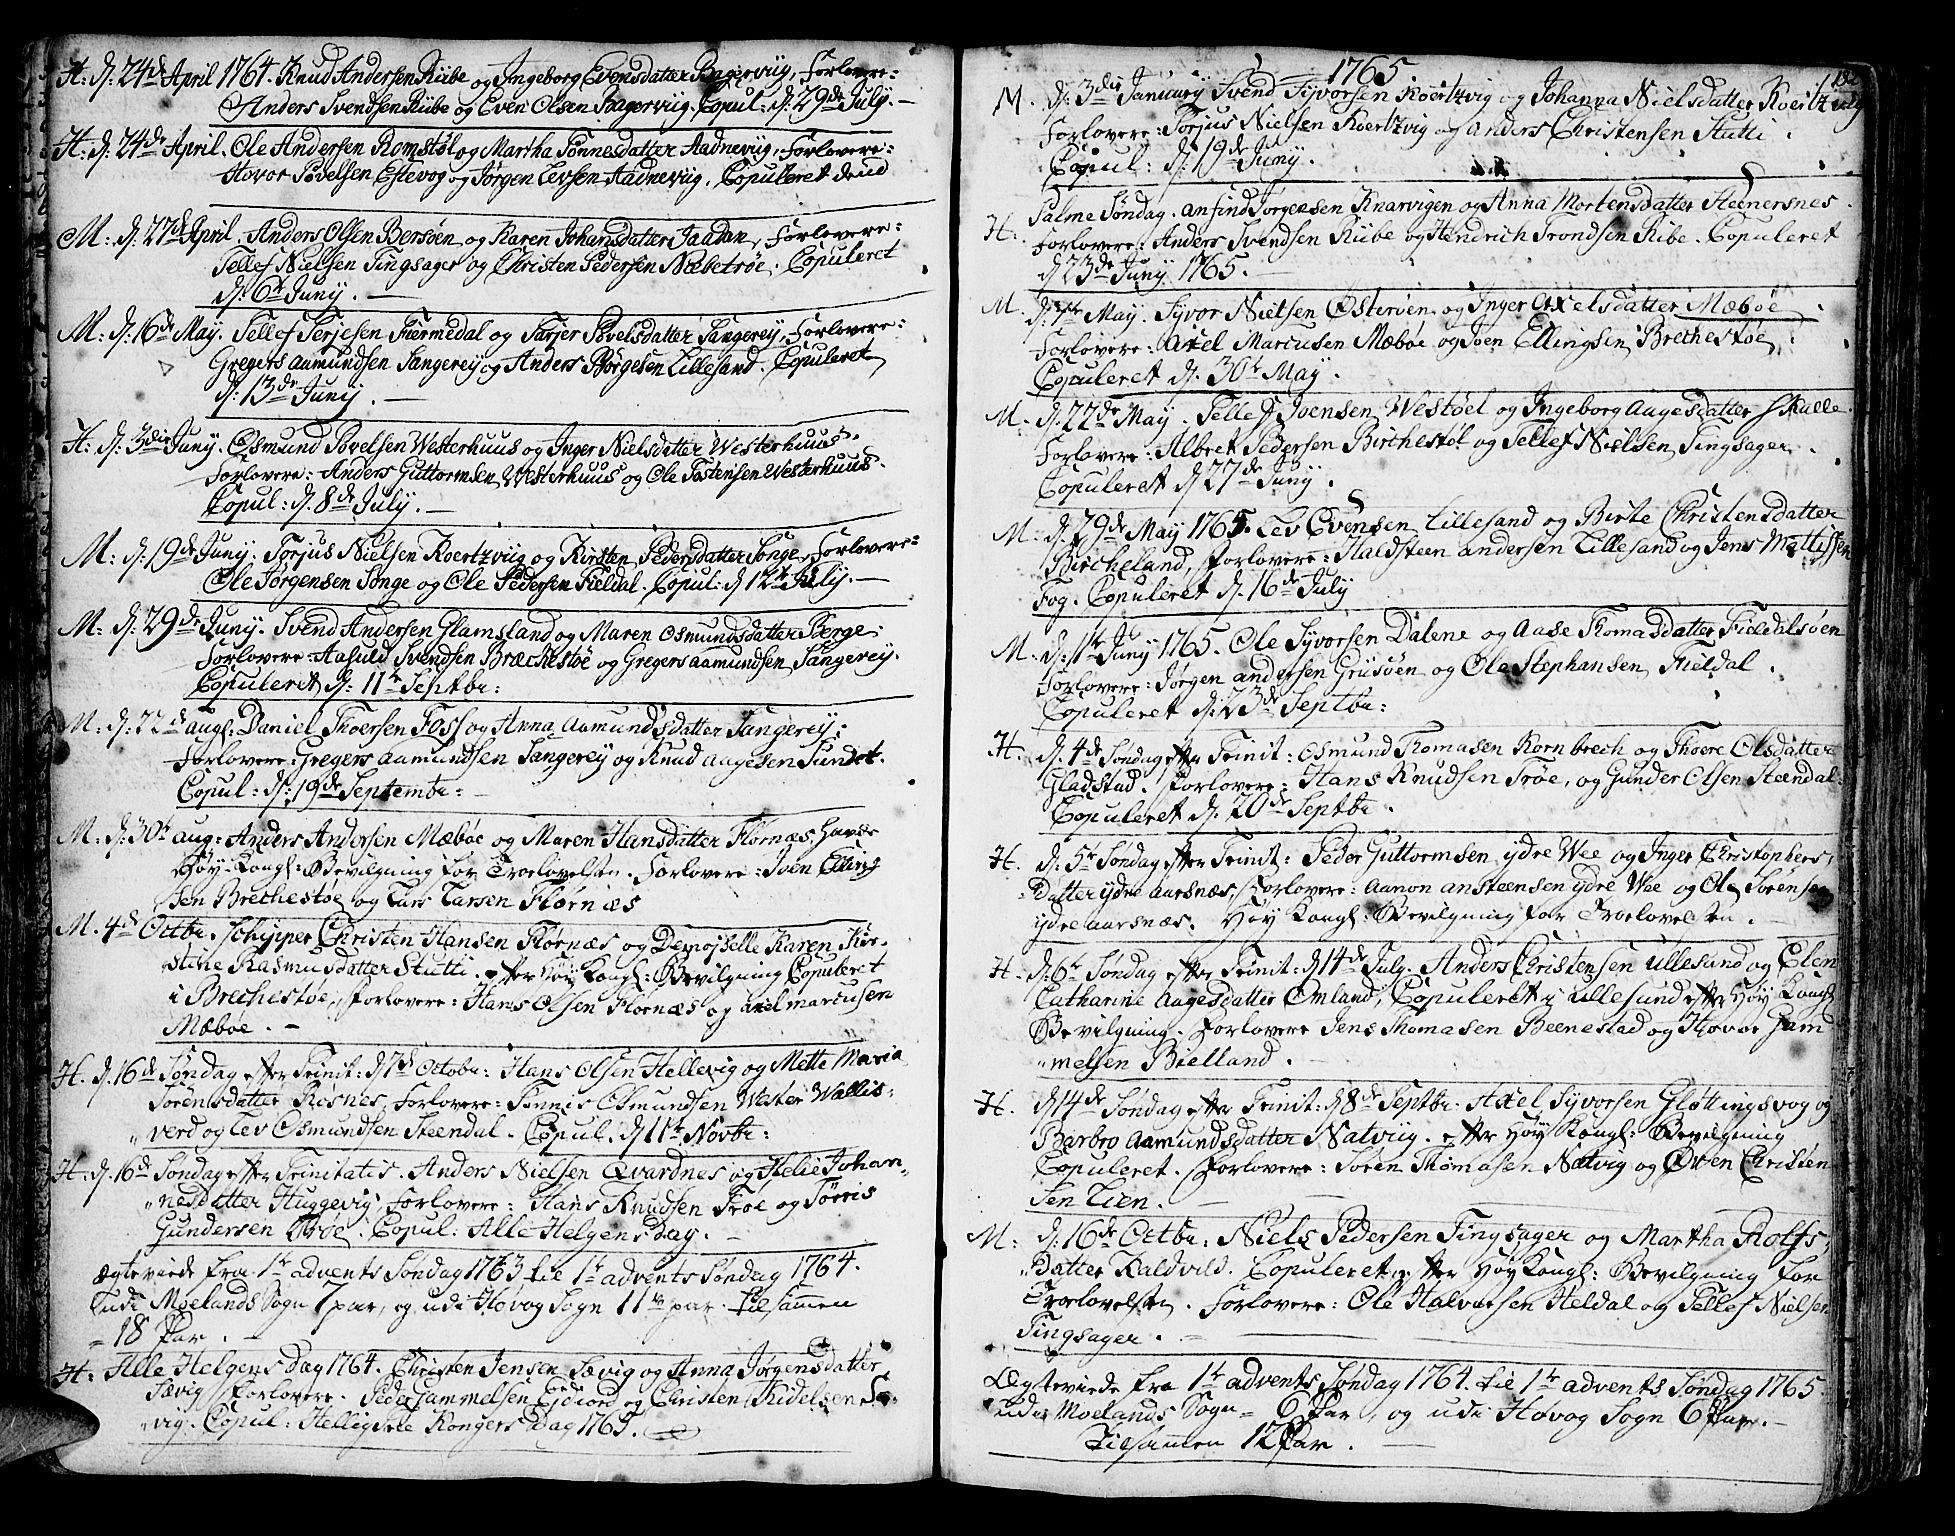 H. d. 24de April 1764. Knud Andersen Kiibe og Ingeborg Evensdatter Bagerviig, Forlovere:
Anders Svendsen Kiibe og Even Olsen Bagerviig. Copul: d. 29de July. —
H: d: 24de April. Ole Andersen Romstøl og Martha Tønnesdatter Aadneviig, Forlovere:
Hovor Povelsen Estevog og Jørgen Levsen Aadneviig. Copuleret
M: d: 27de April. Anders Olsen Bersøen og Karen Johansdatter Jaatan, Forlovere:
Tellef Nielsen Tingsager og Christen Pedersen Næbetrøe. Copuleret
d: 6te Juny. —
M: d: 16de May. Tellef Terjesen Fiermedal og Tarjer Povelsdatter Sangerey, Forlovere:
Gregers Aamundsen Sangerey og Anders Børgesen Lillesand. Copuleret
d: 13de Juny. —
H: d: 3die Juny. Osmund Povelsen Westerhuus og Inger Nielsdatter Westerhuus.
Forlovere: Anders Guttormsen Westerhuus og Ole Tostensen Westerhuus.
Copul: d. 8de July. —
M: d: 19de Juny. Torjus Nielsen Koertzviig og Kirsten Pedersdatter Songe, Forlovere:
Ole Jørgensen Songe og Ole Pedersen Fieldal. Copul: d 12te July. —
M: d: 29de Juny. Svend Andersen Glamsland og Maren Osmundsdatter Berge:
Forlovere: Aasuld Svendsen Bræchestøe og Gregers Aamundsen Sangerey.
Copuleret d: 11te Septbr:
M: d: 22de aug: Daniel Thoersen Foss og Anna Aamundsdatter Sangerey:
Forlovere: Gregers Aamundsen Sangerey og Knud Aagesen Sundet.
Copul: d: 19de Septembr: —
M: d: 30te aug: Anders Andersen Mæbøe og Maren Hansdatter Flørnæs, havde
Høy-Kongl: Bevilgning for Troelovelsen. Forlovere: Joen Elling
sen Brechestøe og Lars Larsen Flørnæs
M. 4de Octbr. Schipper Christen Hansen Flørnæs og Demojselle Karen Kir-
stine Rasmusdatter Stutti. efter Høy Kongl: Bevilgning Copuleret
i Brechestøe, Forlovere: Hans Olsen Flornæs og axel marcusen
Mæbøe. —
H. d. 16de Søndag efter Trinit: d 7de Octobr: Hans Olsen Hellevig og Mette Maria
Sørensdatter Rosnes, Forlovere: Tønnis Osmundsen Wester Wallis-
verd og Lev Osmundsen Steendal. Copul. d 11te Novbr:
H. d. 16de Søndag efter Trinitatis. Anders Nielsen Qvardnes og Helie Johan-
nesdatter Huggevig, Forlovere: Hans Knudsen Troe og Tørris
Gundersen Trøe. Copul: Alle Helgens Dag. —
Ægteviede fra 1te advents Søndag 1763 til 1te advents Søndag 1764.
udi Moelands Sogn 7 par, og udi Høvog Sogn 11 par. tilsammen
= 18 Par. —
H: Alle Helgens Dag 1764. Christen Jensen Sævig og Anna Jørgensdatter
Sævig, Forlovere. Peder Gammelsen Eidiord og Christen Kidelsen Sæ-
vig. Copul: Hellig tre Kongers Dag 1765.
1765
M. d: 3die January Svend Syvorsen Koertzvig og Johanna Nielsdatter Koertzvig
Forlovere: Torjus Nielsen Koertzvig og Anders Christensen Stutti.
Copul: d: 19de Juny.
H. Palme Søndag. Anfind Jørgensen Knarvigen og Anna Mortensdatter Steinersnes.
Forlovere: Anders Svendsen Kiibe og Hendrich Trondsen Kibe. Copuleret
d 23de Juny 1765. —
M. d: May. Syvor Nielsen Østerøen og Inger Axelsdatter Mæbøe
Forlovere: Axel Marcusen Mæbøe og Joen Ellingsen Brechestøe,
Copuleret d. 30te May.
M. d. 22de May. Tellef Joensen Westøel og Ingeborg Aagesdatter Skalle.
Forlovere: Albret Pedersen Birchestøl og Tellef Nielsen Tingsager.
Copuleret d 27de Juny.
M: d. 29de May 1765. Lev Evensen Lillesand og Birte Christensdatter
Bircheland, Forlovere: Haldsteen andersen Lillesand og Jens Mattissen
Fog. Copuleret d. 16de July
M: d: 1te Juny 1765. Ole Syvorsen Dalene og Aase Thomasdatter Fieldalsøen
Forlovere: Jørgen andersen Grusøen og Ole Stephansen Fieldal.
Copuleret d: 23de Septbr:
H. d. 4de Søndag efter Trinit: Osmund Thomasen Kornbrech og Thore Olsdatter
Gladstad. Forlovere: Hans Knudsen Trøe, og Gunder Olsen Steendal.
Copuleret d. 20de Septbr.
H. d. 5te Søndag efter Trinit: Peder Guttormsen ydre Wee og Inger Christophers-
datter ydre aarsnæs, Forlovere: Aanon ansteensen ydre Wee og Ole Sørensen
ydre aarsnæs. Høy Kongl: Bevilgning for Troelovelsen. —
H. d. 6te Søndag efter Trinit: d 14de July. Anders Christensen Lillesand og Elen
Catharine Aagesdatter Omland, Copuleret i Lillesund efter Høy Kongl
Bevilgning. Forlovere Jens Thomasen Beenestad og Hovor Gam
melsen Brelland.
H. d 14de Søndag efter Trinit: d 8de Septbr. Axel Syvorsen Gløttingsvog og
Barbro Aamundsdatter Natviig. efter Høy Kongl: Bevilgning
Copuleret. Forlovere: Søren Thomasen Natvig og Øven Christen
sen Lien. —
M: d. 16de Octbr: Niels Pedersen Tingsager og Martha Rolfs-
datter Kaldvild. Copuleret efter Høy Kongl: Bevilgning for
Troelovelsen. Forlovere: Ole Halvorsen Heldal og Tellef Nielsen
Tingsager. —
Ægteviede fra 1te advents Søndag 1764. til 1te advents Søndag 1765.
udi Moelands Sogn = 6 Par, og udi Høvog Sogn 6 Par. —
Tilsammen 12 Par. —